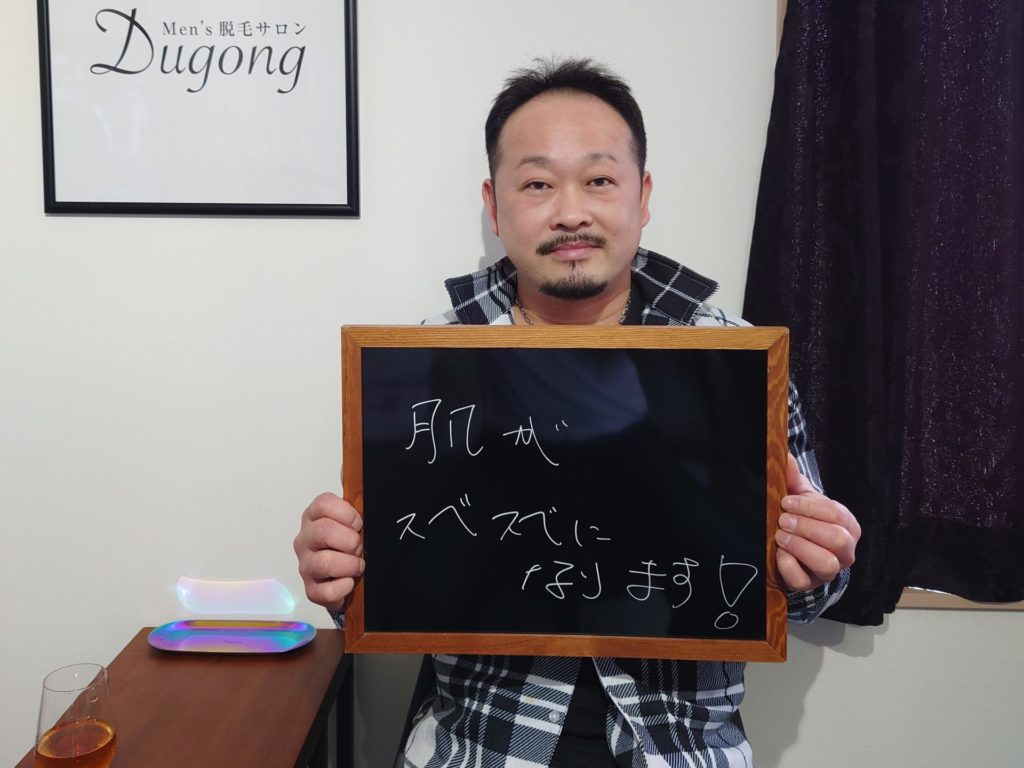 Men's 脱毛サロン
Dugong
肌が
スベスベに
なります!